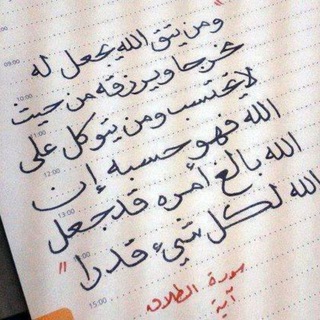 " ومن يتق الله يجعل له
مخرجا ويرزقه من حيث
لا يحتسب ومن يتوكل على
الله فهو حسبه إن
الله بالغ أمره قد جعل
الله لكل شيء قدرا "
سورة الطلاق
آية
09:00
10:00
11:00
12:00
13:00
15:00